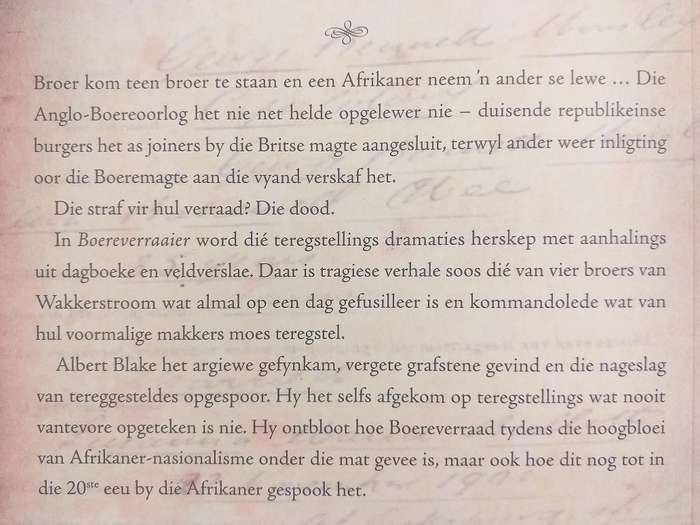 Broer kom teen broer te staan en een Afrikaner neem 'n ander se lewe ... Die
Anglo-Boereoorlog het nie net helde opgelewer nie – duisende republikeinse
burgers het as joiners by die Britse magte aangesluit, terwyl ander weer inligting
oor die Boeremagte aan die vyand verskaf het.
Die straf vir hul verraad? Die dood.
In Boereverraaier word dié teregstellings dramaties herskep met aanhalings
uit dagboeke en veldverslae. Daar is tragiese verhale soos dié van vier broers van
Wakkerstroom wat almal op een dag gefusilleer is en kommandolede wat van
hul voormalige makkers moes teregstel.
Albert Blake het argiewe gefynkam, vergete grafstene gevind en die nageslag
van tereggesteldes opgespoor. Hy het selfs afgekom op teregstellings wat nooit
vantevore opgeteken is nie. Hy ontbloot hoe Boereverraad tydens die hoogbloei
van Afrikaner-nasionalisme onder die mat gevee is, maar ook hoe dit nog tot in
die 20ste eeu by die Afrikaner gespook het.